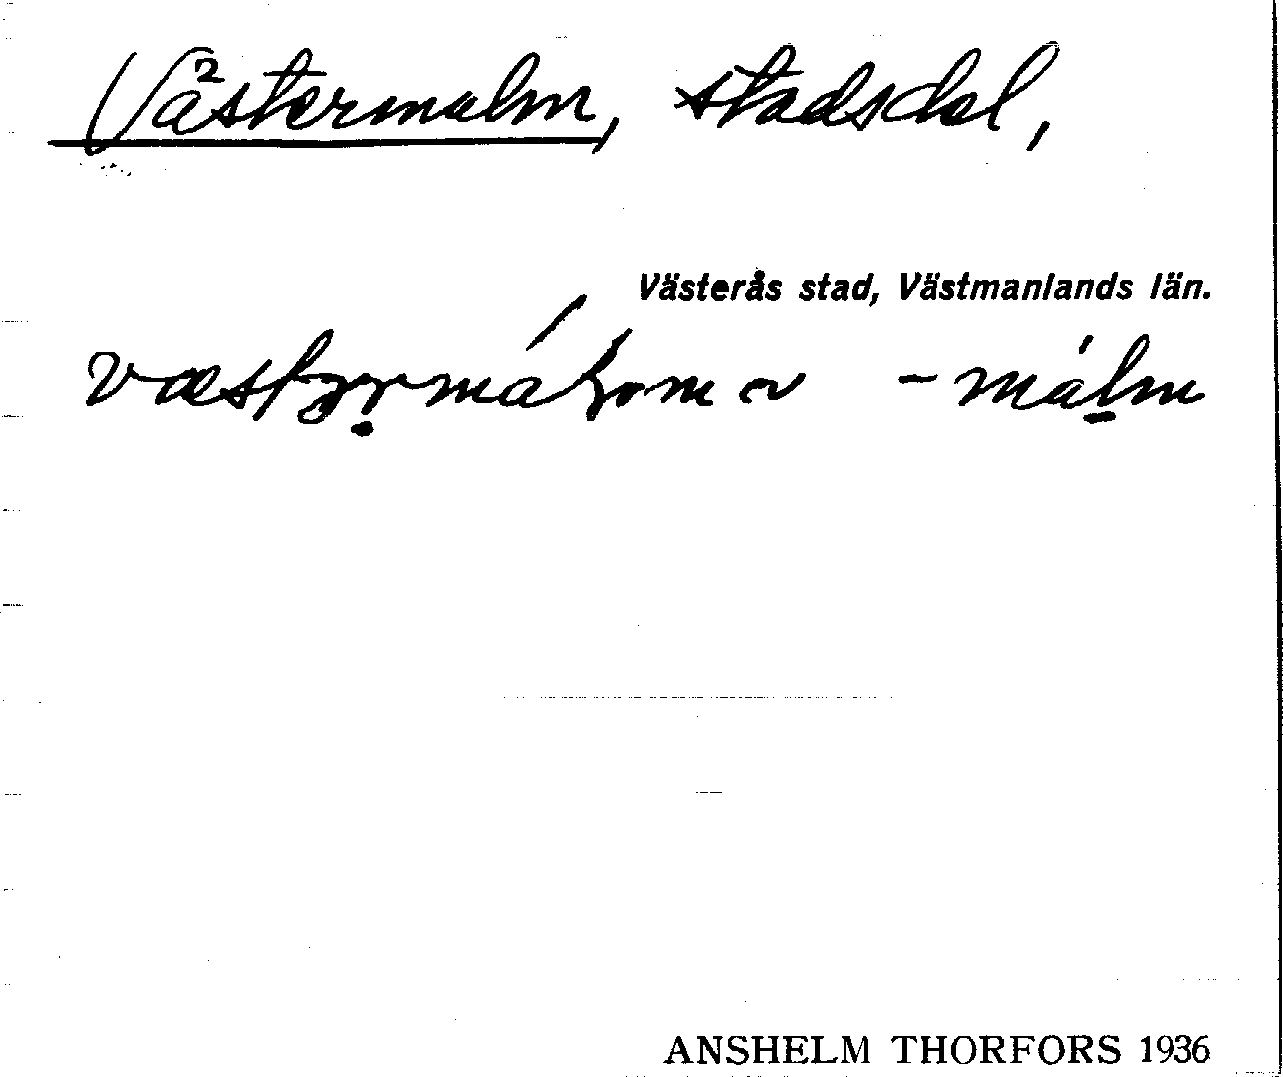 Västermalm, stadsdel,
Västerås stad, Västmanlands län.
-málm
ANSHELM THORFORS 1936